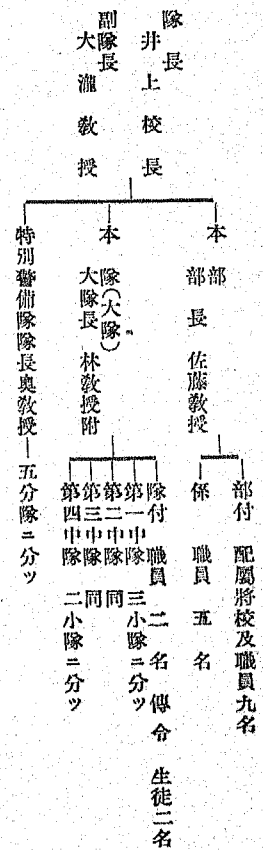 隊長
井上校長
副隊長
大瀧敎授
本部
部長 佐藤敎授
部付 配屬將校及職員九名
係 職員五名
本隊(大隊)
大隊長 林敎授附
隊付 職員二名 傳令 生徒二名
第一中隊 三小隊ニ分ツ
第二中隊 同
第三中隊 同
第四中隊 二小隊ニ分ツ
特別警備隊隊長奧敎授―五分隊ニ分ツ